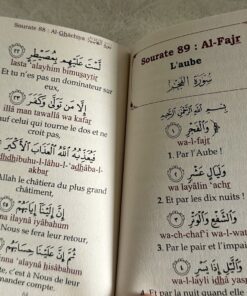 Sourate 88 : Al-Ghâchiya
لَّسْتَ عَلَيْهِم بِمُصَيْطِرٍ
lasta 'alayhim bimuṣayṭir
Et tu n'es pas un dominateur sur
eux,
إِلَّا مَن تَوَلَّىٰ وَكَفَرَ
illâ man tawallâ wa kafar
sauf celui qui tourne le dos et ne
croit pas,
فَيُعَذِّبُهُ ٱللَّهُ ٱلْعَذَابَ ٱلْأَكْبَرَ
akbar
Allah le châtiera du plus grand
châtiment.
إِنَّ إِلَيْنَآ إِيَابَهُمْ
inna ilaynâ iyâbahum
Nous se fera leur retour,
ثُمَّ إِنَّ عَلَيْنَا حِسَابَهُم
inna 'alaynâ ḥisâbahum
c'est à Nous de leur
demander compte.
Sourate 89 : Al-Fajr
L'aube
سُورَةُ الْفَجْرِ
وَٱلْفَجْرِ
wa-l-fajr
1. Par l'Aube !
وَلَيَالٍ عَشْرٍ
wa layâlin 'achr
2. Et par les dix nuits !
وَٱلشَّفْعِ وَٱلْوَتْرِ
wa-ch-chaf'i wa-l-wat
3. Par le pair et l'impair
وَٱلَّيْلِ إِذَا
wa-l-layli idhâ
4. Et par la nuit quand elle